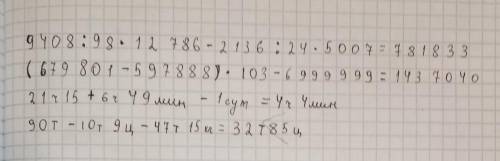 9408:98·12 786-2136:24·5007=781833
(679 801-597888)·103-6999999=1437040
21ч15+6ч 49мин -1сут =4ч 4мин
90т-10т 9ц-47т 15ц=32т85ц